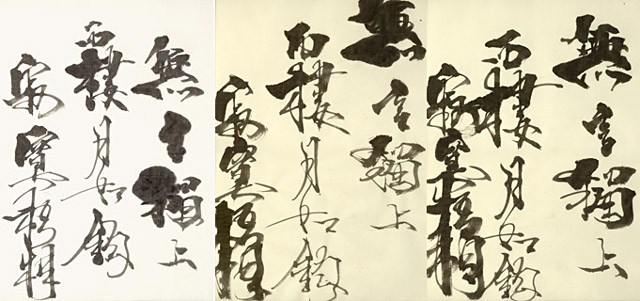 無言獨上
西樓月如鉤
寂寞梧桐
無言獨上
西樓月如鉤
寂寞梧桐
無言獨上
西樓月如鉤
寂寞梧桐